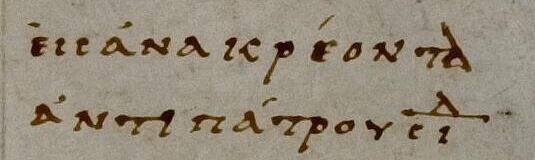 ἐις ἀνακρέοντα
ἀντιπάτρου σιδ